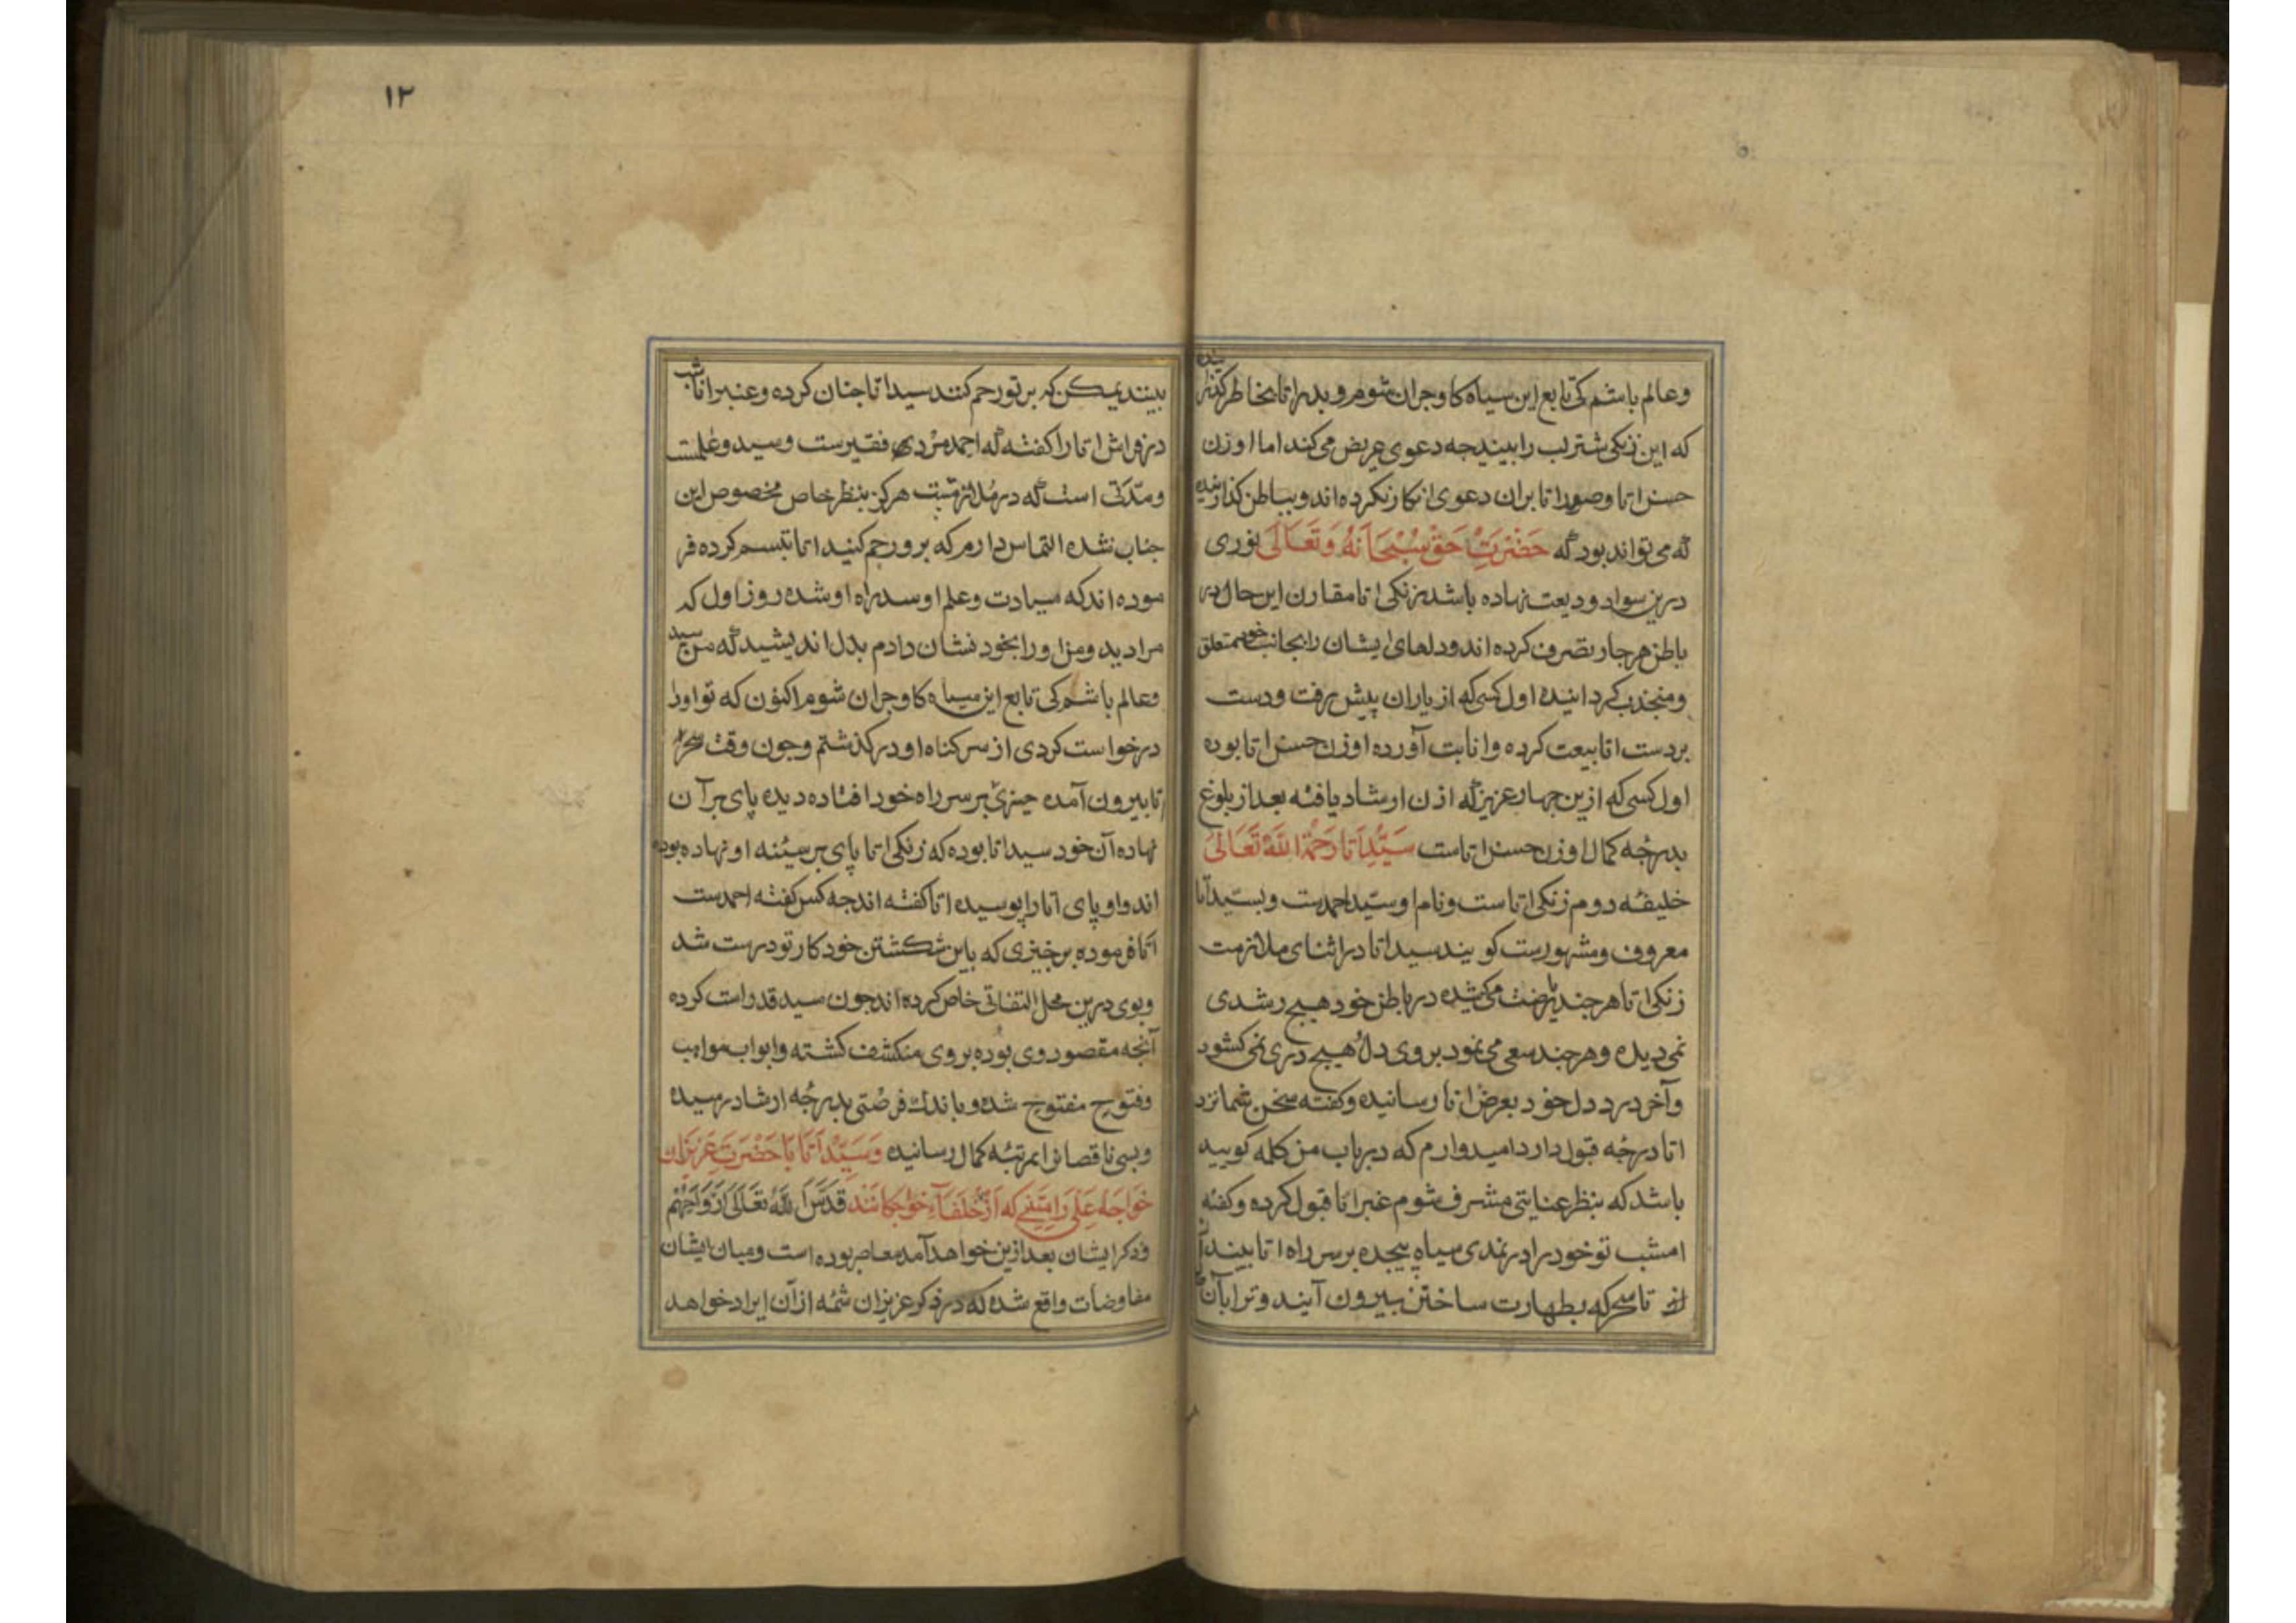 وعالم باشم کی تابع این سیاه کاوجران شوم و بدر اتا بخاطر گذرانیده
که این زنکی شتر لب را ببیند جه دعوی عریض می کند اما اوزن
حسن اتا و صدر اتا بران دعوی انکار نکرده اند و بباطن گذارنیده
که می تواند بود که حَضْرَتِ حَقْ سُبْحَانَهُ وَتَعَالَى نوری
درین سواد ودیعت نهاده باشد زنکی اتا مقارن این حال در
باطن هر جار تصرف کرده اند و دلهای ایشان را بجانب خود متعلق
و منجذب کردانیده اول کسی که از یاران پیش رفت و دست
بردست اتا بیعت کرده و انابت آورده اوزن حسن اتا بوده
اول کسی که ازین جهار عزیز که اذن ارشاد یافته بعد از بلوغ
بدرجه کمال اوزن حسن اتاست سَیِّدْ اَتَا رَحْمَةُ اللَّهِ تَعَالَى
خلیفه دوم زنکی اتاست و نام او سید احمدست و بسید اتا
معروف و مشهورست کویند سید اتا در اثنای ملازمت
زنکی اتا هر جند ریاضت می کشیده در باطن خود هیج رشدی
نمی دیده و هر جند سعی می نمود بر وی دل هیج دری نمی کشود
و آخر درد دل خود بعرض اتا رسانیده و کفته سخن شما نزد
اتا درجه قبول دارد امیدوارم که در باب من کلمه کویید
باشد که بنظر عنایتی مشرف شوم عنبر انا قبول کرده و کفته
امشب تو خود را در نمدی سیاه بیجده بر سر راه اتا بیندار
تا سحر که بطهارت ساختن بیرون آیند و ترا بآن
بینند یمکن که بر تو رحم کنند سید اتا جنان کرده و عنبر انا شب
در فراش اتا را کفته که احمد مردی فقیرست و سید و عالمست
و مدتی است که در ملازمت هرکز بنظر خاص مخصوص این
جناب نشده التماس دارم که بر و رحم کنید اتا تبسم کرده فر
موده اند که سیادت و علم او سد راه او شده روز اول که
مرا دید و من او را بخود نشان دادم بدل اندیشید که من سید
و عالم باشم کی تابع این سیاه کاوجران شوم اکنون که تو او را
درخواست کردی از سر کناه او در کذشتم و جون وقت سحر
اتا بیرون آمده جیزی بر سر راه خود افتاده دیده پای بر آن
نهاده آن خود سید اتا بوده که زنکی اتا پای بر سینه او نهاده بوده
اند و او پای اتا را بوسیده اتا کفته اند جه کس کفته احمدست
اتا فرموده برخیزی که باین شکشتن خود کار تو درست شد
و بوی درین محل التفاتی خاص کرده اند جون سید قد راست کرده
آنجه مقصود وی بوده بر وی منکشف کشته و ابواب مواهب
و فتوح مفتوح شده و باندک فرصتی بدرجه ارشاد رسیده
و بسی ناقصانرا بمرتبه کمال رسانیده وَسَیِّدْ اَتَا بَا حَضْرَتِ عَزِیزَان
خَوَاجَه عَلِی رَامِیتَنِی که اَزْ خُلَفَاءِ خَواجَکَانَنْد قَدَّسَ اللَّهُ تَعَالَى اَرْوَاحَهُمْ
و ذکر ایشان بعد ازین خواهد آمد معاصر بوده است و میان ایشان
مفاوضات واقع شده که در ذکر عزیزان شمه از آن ایراد خواهد
۱۲